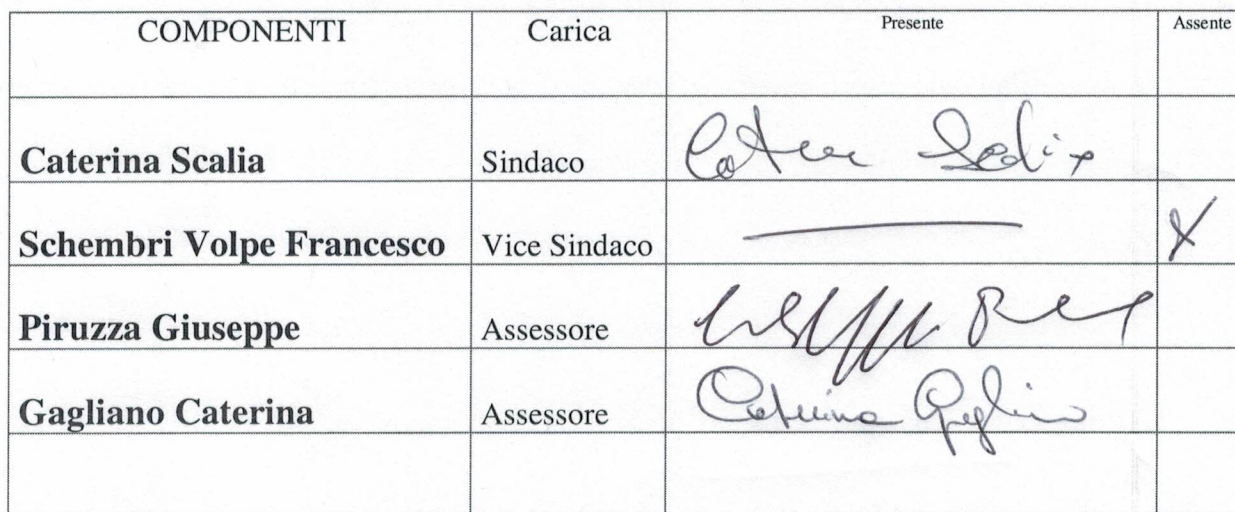 COMPONENTI Carica Presente Assente
Caterina Scalia Sindaco
Schembri Volpe Francesco Vice Sindaco X
Piruzza Giuseppe Assessore
Gagliano Caterina Assessore Caterina Gagliano